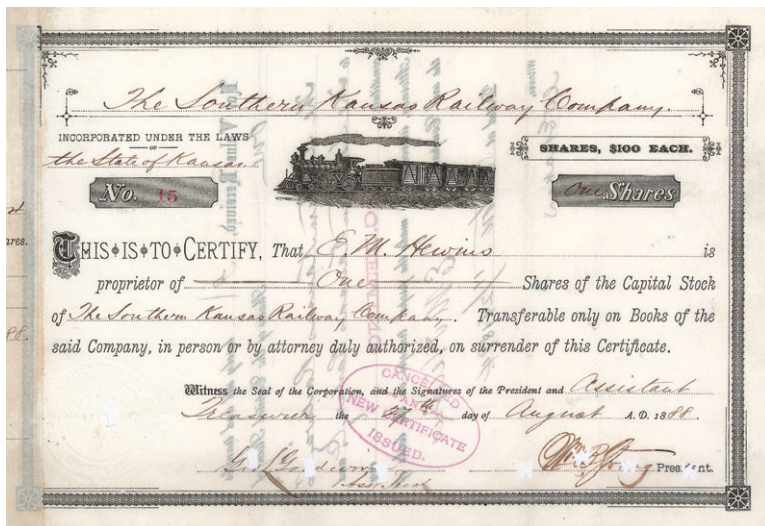 The Southern Kansas Railway Company.
INCORPORATED UNDER THE LAWS
OF
the State of Kansas
SHARES, $100 EACH.
No. 15
One Shares
THIS IS TO CERTIFY, That E. M. Hewins is
proprietor of One Shares of the Capital Stock
of The Southern Kansas Railway Company. Transferable only on Books of the
said Company, in person or by attorney duly authorized, on surrender of this Certificate.
Witness the Seal of the Corporation, and the Signatures of the President and Assistant
Treasurer the 27th day of August A. D. 1888.
CANCELLED
AND
NEW CERTIFICATE
ISSUED.
Geo. L. Goodwin
President.